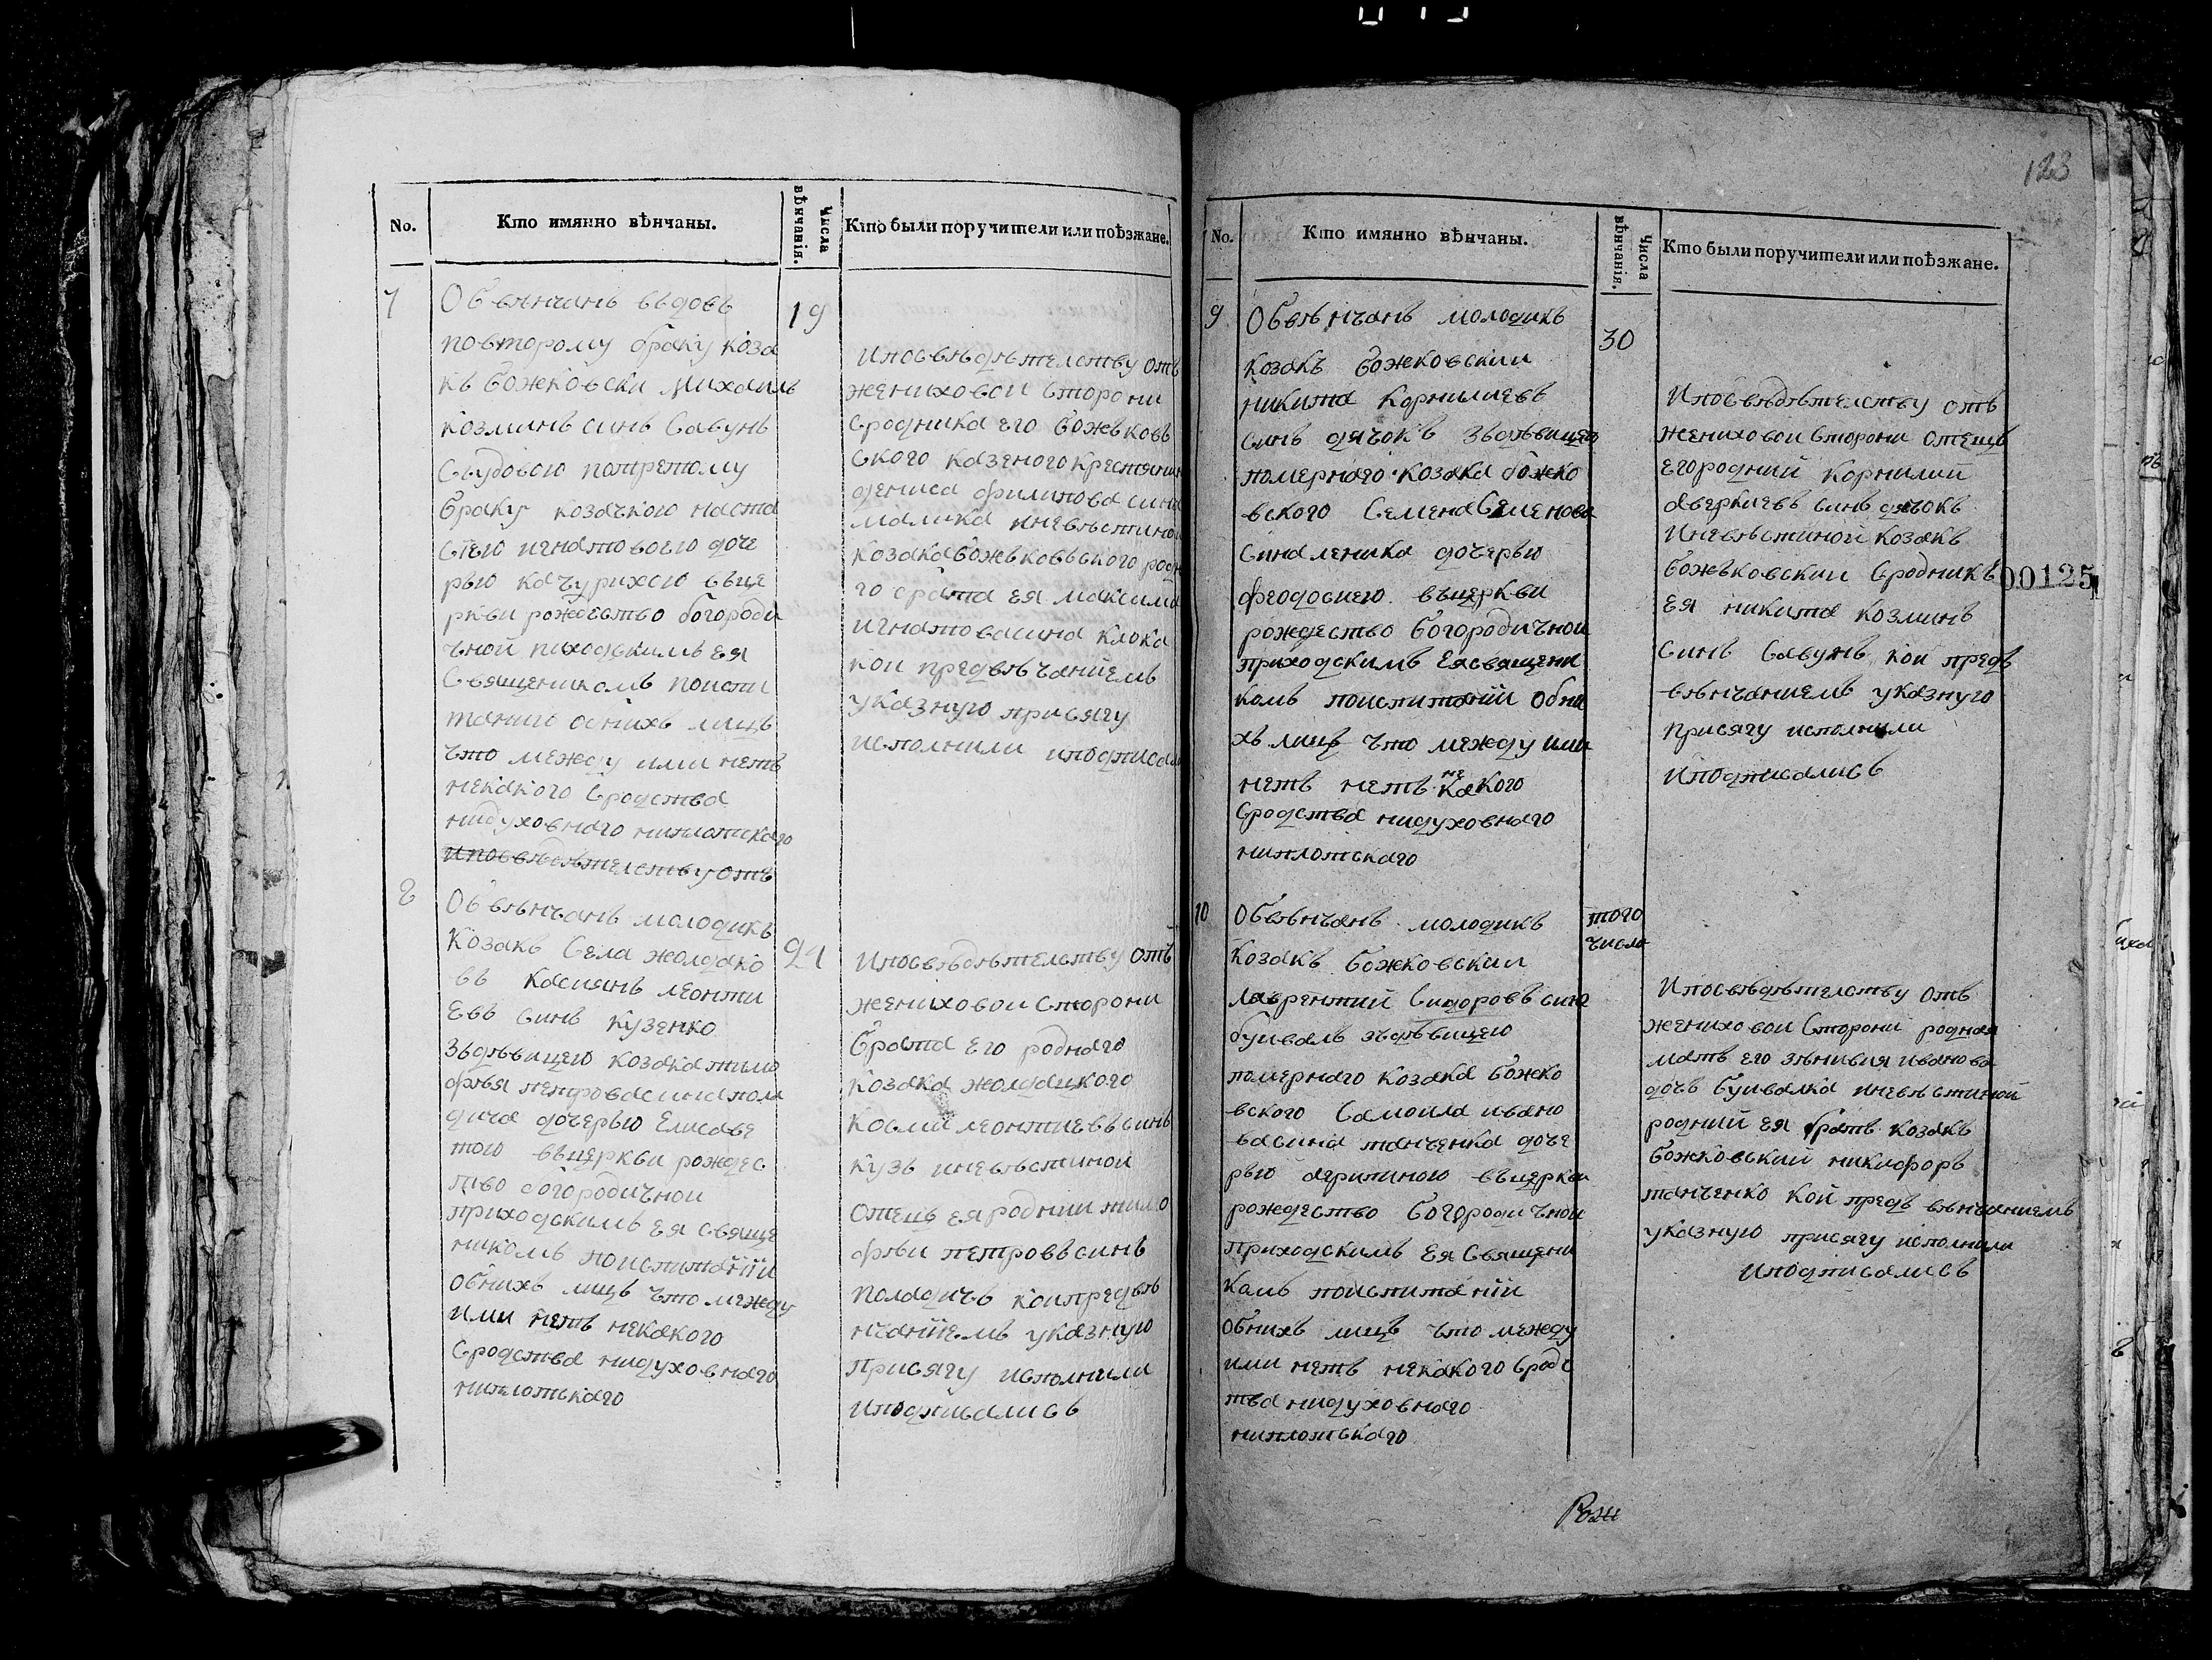 123
No.
Кто имянно вѣнчаны.
Числа вѣнчанія.
Кто были поручители или поѣзжане.
7
19
Обвѣнчанъ въдовъ
повторому браку коза
къ божковски Михаилъ
козминъ синъ Савунъ
Съудовою потретому
браку козачкою наста
сіею игнатовоею доче
рью качурихою въце
ркви рождество богороди
чной приходскимъ ея
Священикомъ поиспи
танию обнихъ лицъ
что между ими нетъ
некакого Сродства
нидуховнаго ниплотскаго
ипосвѣдѣтелству отъ
ипосвѣдѣтелству отъ
жениховой Сторони
Сродника его божъковъ
ского казеного крестянин
дениса филипова сина
малика иневѣстиной
козака божъковъского родн
го брата ея максима
игнатова сина клока
кои предвѣчаніемъ
указную присягу
исполнили иподписали
8
21
Обвѣнчанъ молодикъ
Козакъ Села жолдако
въ касиянъ леонти
евъ синъ кузенко
здѣвицею козака тимо
фѣя петрова сина пола
дича дочерью Елисаве
тою въцеркви рождес
тво богородичной
приходскимъ ея свяще
никомъ поиспитаніи
обнихъ лицъ что между
ими нетъ некакого
Сродства нидуховнаго
ниплотскаго
ипосвѣдѣтелству отъ
жениховои Сторони
брата его роднаго
козака жолдацкого
косми леонтиевъ синъ
кузь иневѣстиной
отецъ ея родний тимо
фѣи петровъ синъ
поладичъ кои предвѣ
нчаніемъ указную
присягу исполнили
иподписалисъ
No.
Кто имянно вѣнчаны.
Числа вѣнчанія.
Кто были поручители или поѣзжане.
9
30
Обвѣнчанъ молодикъ
козакъ божковскии
никита Корнилиевъ
синъ дячокъ здѣвицею
померлаго козака божко
вского Семена Семенова
сина леника дочерью
феодосиею въцеркви
рождество богородичнои
приходскимъ ея священи
комъ поиспитаніи обни
хъ лицъ что между ими
нетъ нетъ некакого
Сродства нидуховнаго
ниплотскаго
ипосвѣдѣтелству отъ
жениховои Сторони отецъ
его родний Корнилий
аверкиевъ синъ дячокъ
иневѣстиной козакъ
божъковскии Сродникъ
ея никита козминъ
синъ Савунъ кои предъ
вѣнчаниемъ указную
присягу исполнили
иподписалисъ
00125
10
того
числа
Обвѣнчанъ молодикъ
Козакъ божковскии
лаврентий Сидоровъ синъ
буйвалъ здѣвицею
померлаго козака божко
вского Самоила ивано
ва сина танченка доче
рью агрипиною въцеркви
рождество богородичнои
приходскимъ ея Священи
комъ поиспитаніи
обнихъ лицъ что между
ими нетъ некакого Сродс
тва нидуховнаго
ниплотскаго
ипосвѣдѣтелству отъ
жениховои Сторони родная
мать его иванова
дочъ буйвалка иневѣстиной
родний ея братъ козакъ
божковский никифоръ
танченко кой предъ вѣнчаниемъ
указную присягу исполнили
иподписалисъ
Рож